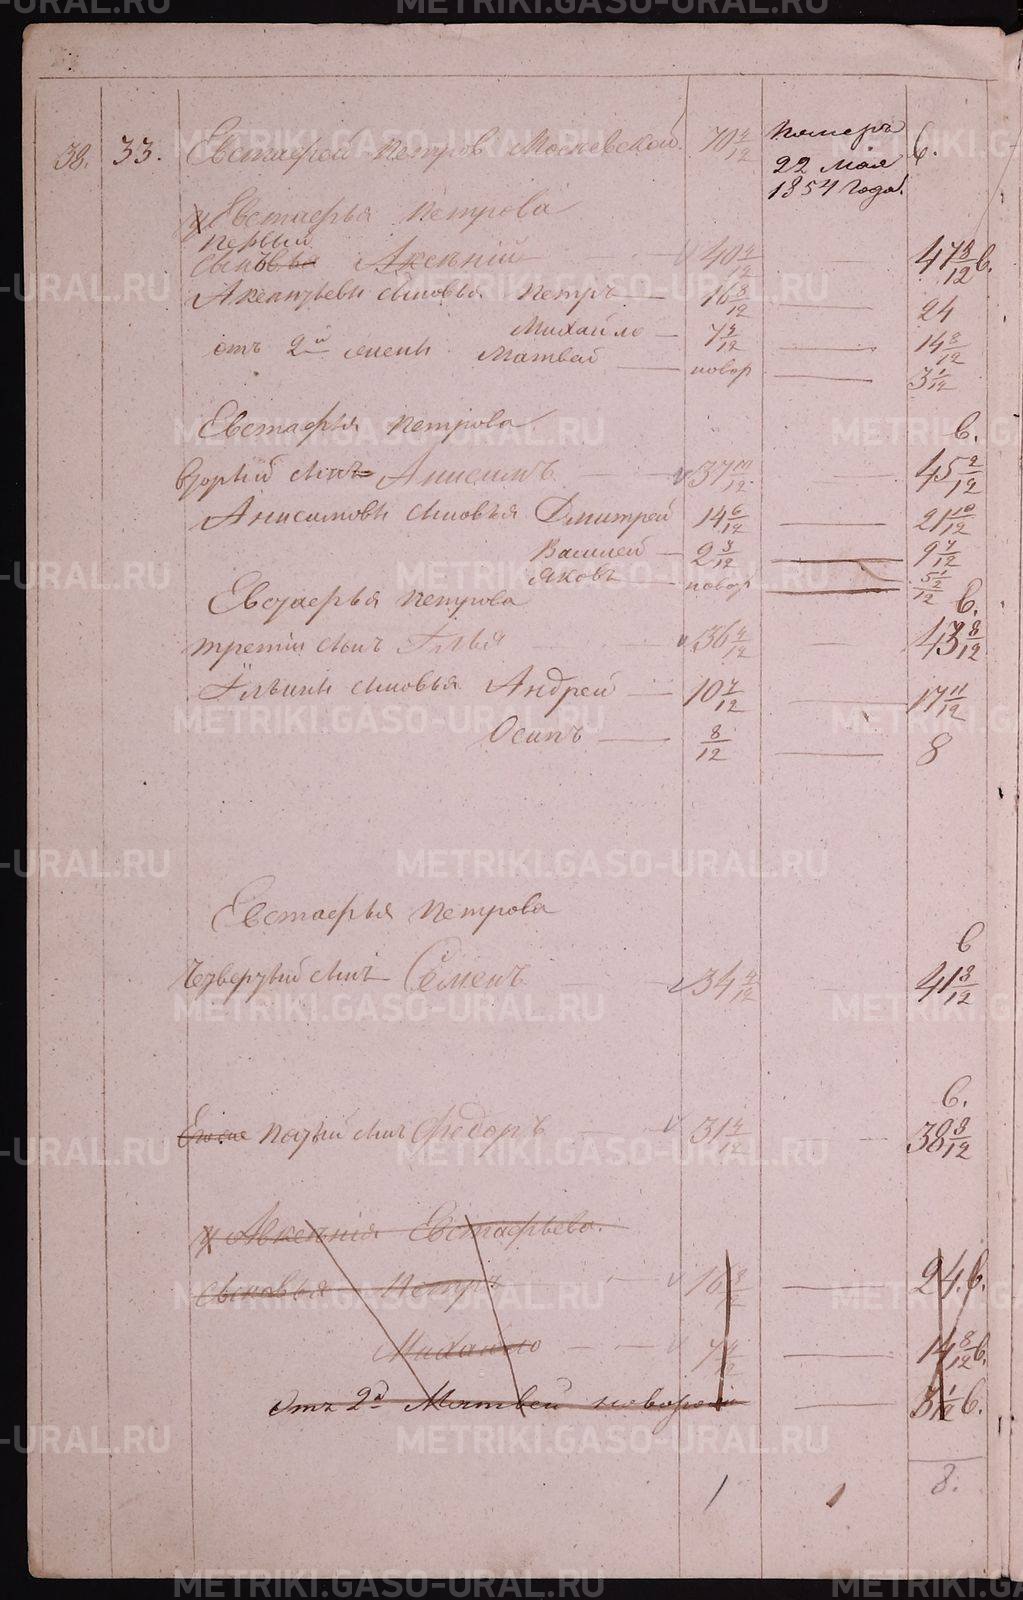 38. 33. Евстафей Петров Московской 70 4/12 Померъ в.
22 Мая
1854 Года.
у Евстафья Петрова
первый
сыновья Аксѣнтий 40 4/12 — 47 8/12 в.
Аксентьевы сыновья Петръ — 16 8/12 — 24
Михайло — 7 4/12 — 14 8/12
отъ 2й жены Матвей — новор — 3 1/12
Евстафья Петрова в.
вторый сынъ Анисимъ 37 10/12 — 45 2/12
Анисимовы сыновья Дмитрей 14 6/12 — 21 10/12
Василей — 2 3/12 — 9 7/12
Яковъ — новор — 5 1/2/12
Евстафья Петрова в.
третий сынъ Илья 36 4/12 — 43 8/12
Ильины сыновья Андрей — 10 7/12 — 17 11/12
Осипъ — 8/12 — 8
Евстафья Петрова
в
четвертый сынъ Семенъ 34 4/12 — 41 8/12
в.
Пятый сынъ Федоръ 31 4/12 — 38 8/12
у Авксентия Евстафьева.
сыновья Петръ 16 8/12 — 24. в.
Михайло 7 4/12 — 14 8/12 в.
отъ 2й Матвей новорож — 3 1/12 в.
8.
METRIKI.GASO-URAL.RU